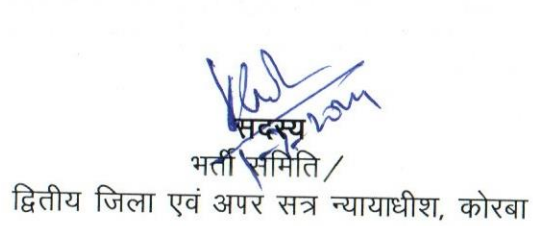 सदस्य
भर्ती समिति /
द्वितीय जिला एवं अपर सत्र न्यायाधीश, कोरबा